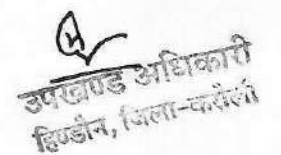 उपखण्ड अधिकारी
हिण्डौन, जिला-करौली